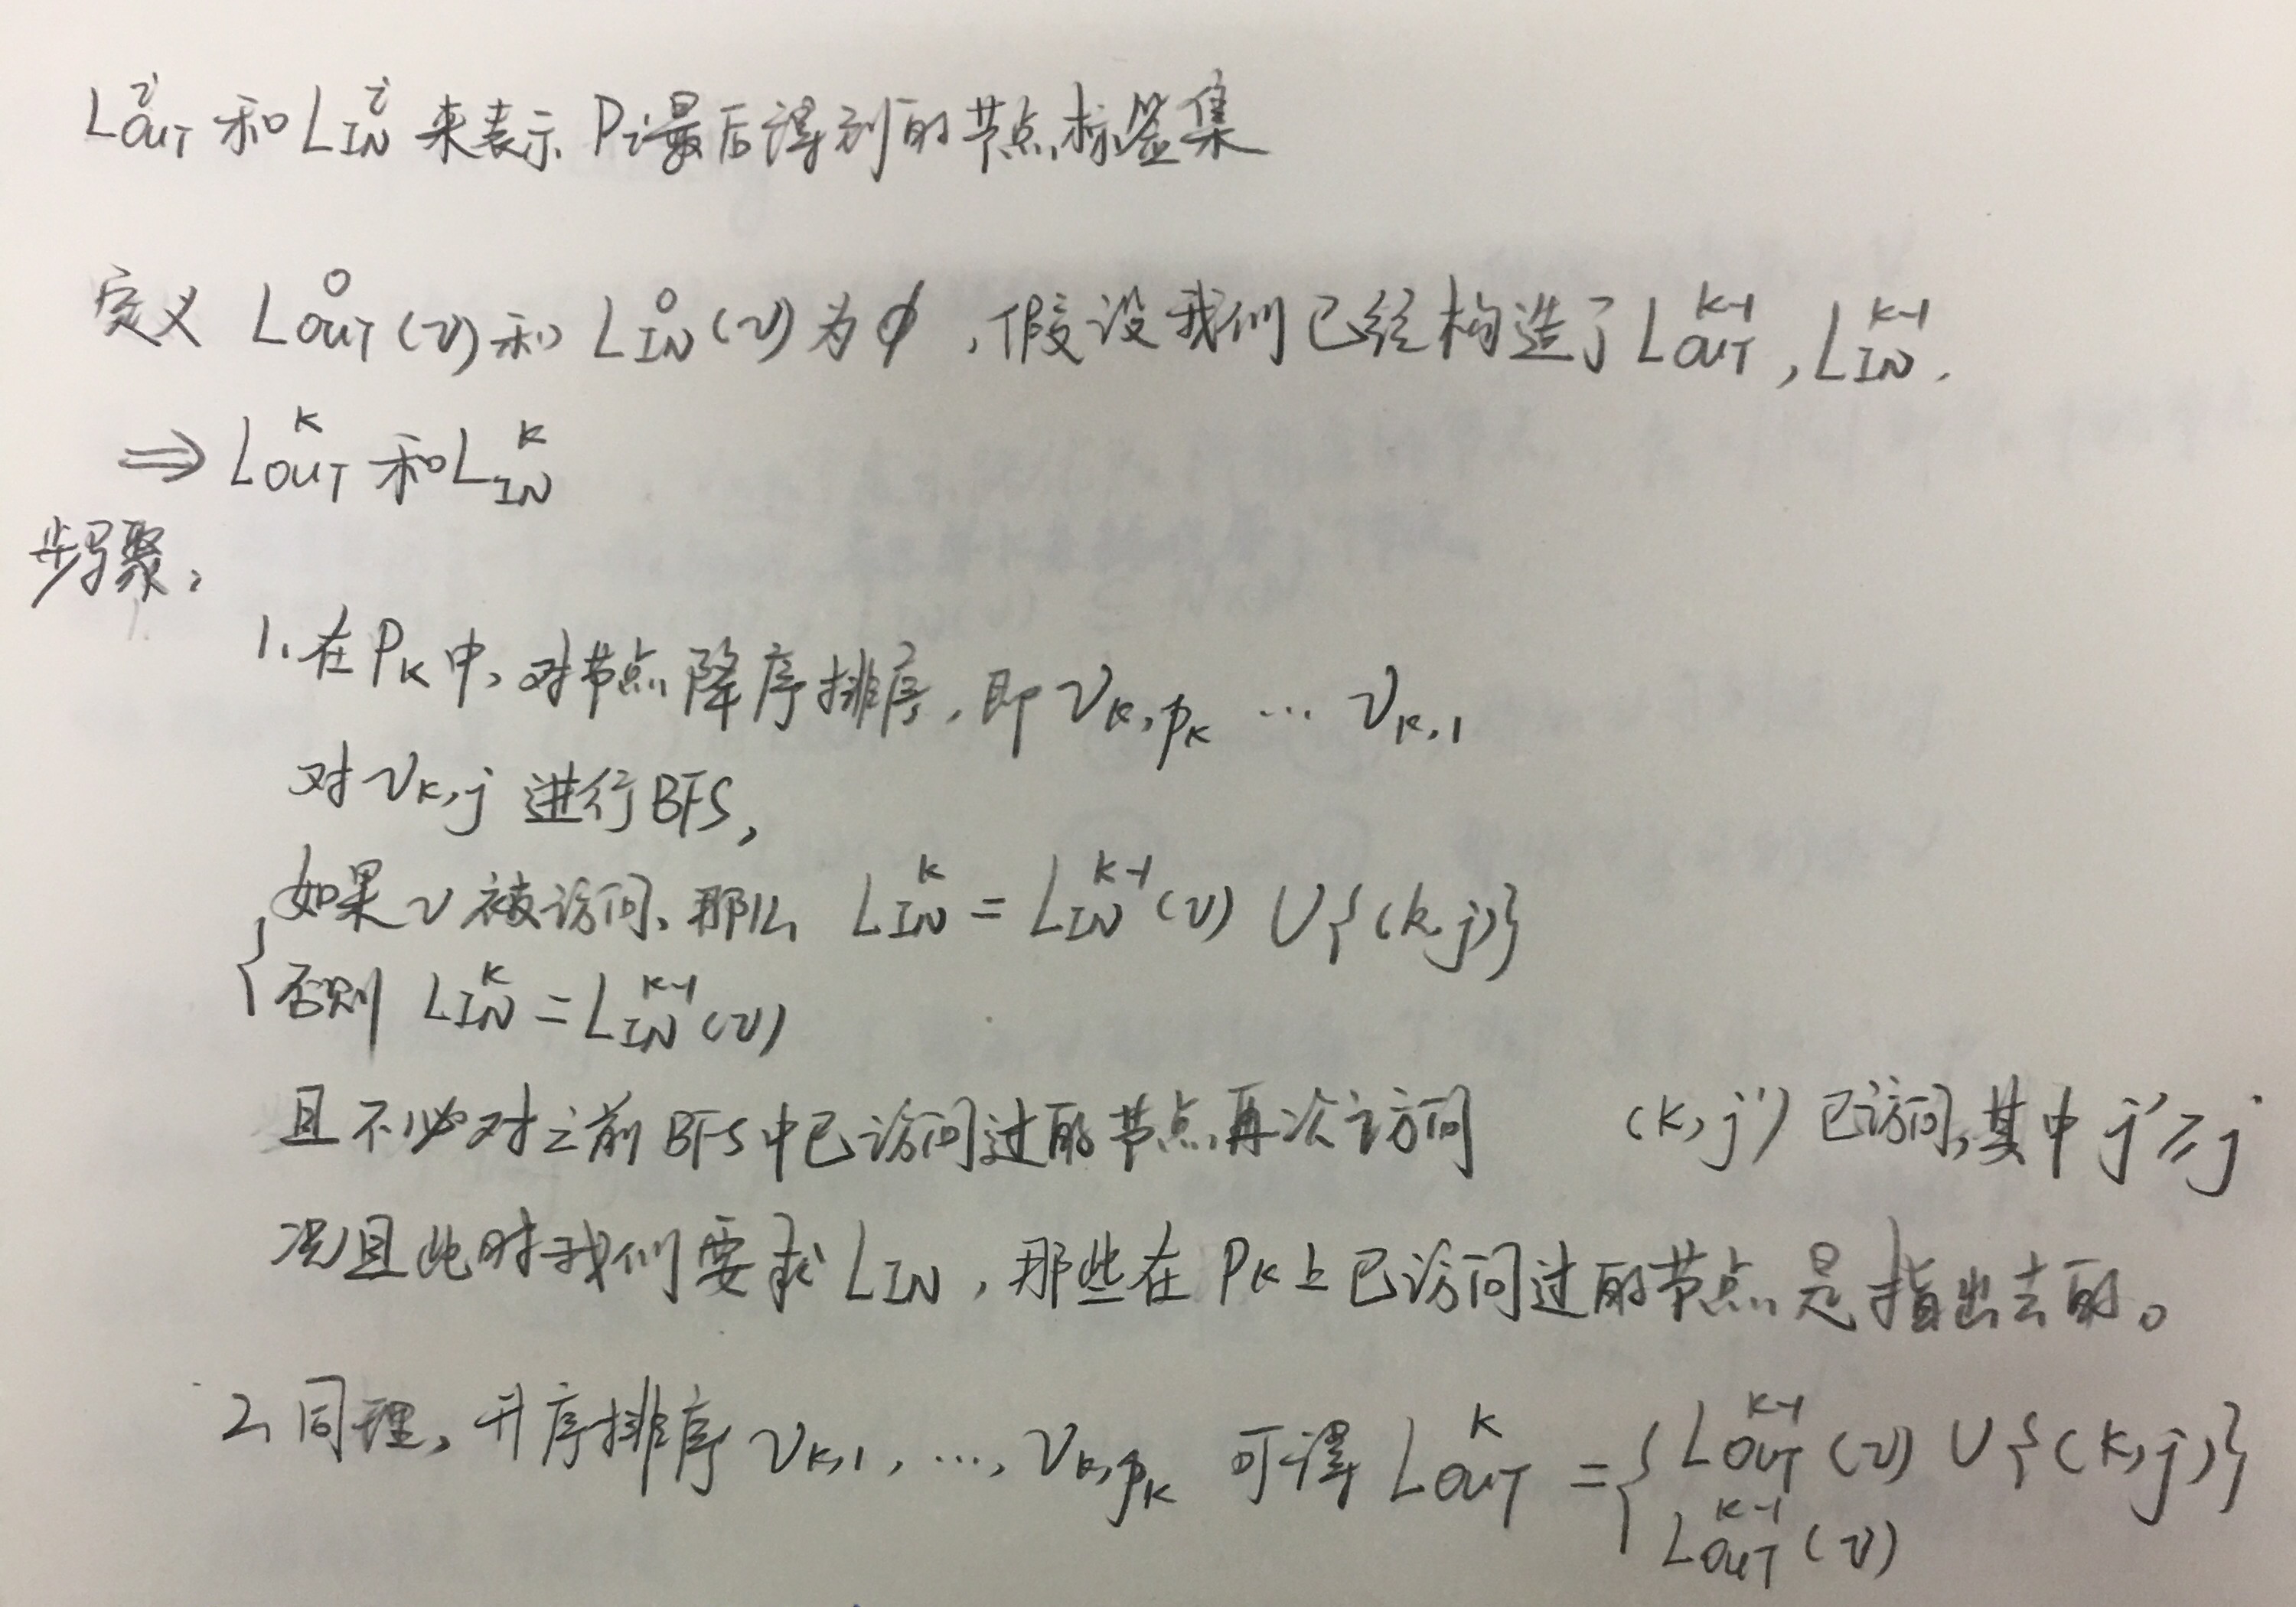 L^i_OUT 和 L^i_IN 来表示 P_i 最后得到的节点标签集
定义 L^0_OUT(v) 和 L^0_IN(v) 为 ∅ , 假设我们已经构造了 L^{k-1}_OUT , L^{k-1}_IN ,
⇒ L^k_OUT 和 L^k_IN
步骤:
1. 在 P_k 中, 对节点降序排序, 即 v_{k,p_k} … v_{k,1}
对 v_{k,j} 进行BFS,
如果 v 被访问, 那么 L^k_IN = L^{k-1}_IN(v) ∪ {(k,j)}
否则 L^k_IN = L^{k-1}_IN(v)
且不必对之前BFS中已访问过的节点再次访问 (k, j') 已访问,其中 j' ≥ j
况且此时我们要求 L_IN , 那些在 P_k 上已访问过的节点是指出去的。
2. 同理, 升序排序 v_{k,1}, …, v_{k,p_k} 可得 L^k_OUT = { L^{k-1}_OUT(v) ∪ {(k,j)}
L^{k-1}_OUT(v)